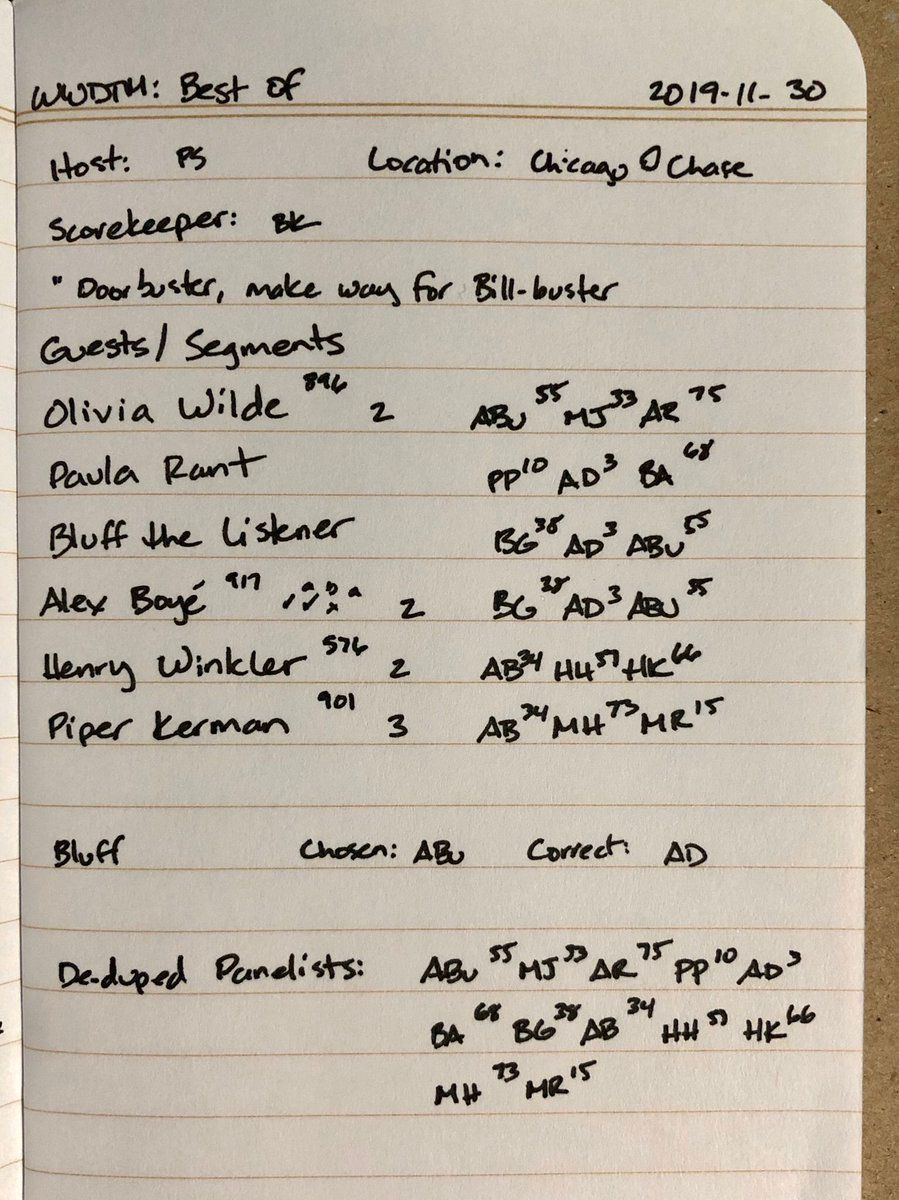 WWDTM: Best Of 2019-11-30
Host: PS Location: Chicago Chase
Scorekeeper: BK
" Doorbuster, make way for Bill-buster
Guests/Segments
Olivia Wilde 896 2 ABu 55 MJ 33 AR 75
Paula Rant PP 10 AD 3 BA 68
Bluff the Listener BG 38 AD 3 ABu 55
Alex Boyé 917 2 BG 38 AD 3 ABu 55
Henry Winkler 576 2 AB 34 HH 57 HK 66
Piper Kerman 901 3 AB 34 MH 73 MR 15
Bluff Chosen: ABu Correct: AD
De-duped Panelists: ABu 55 MJ 33 AR 75 PP 10 AD 3
BA 68 BG 38 AB 34 HH 57 HK 66
MH 73 MR 15